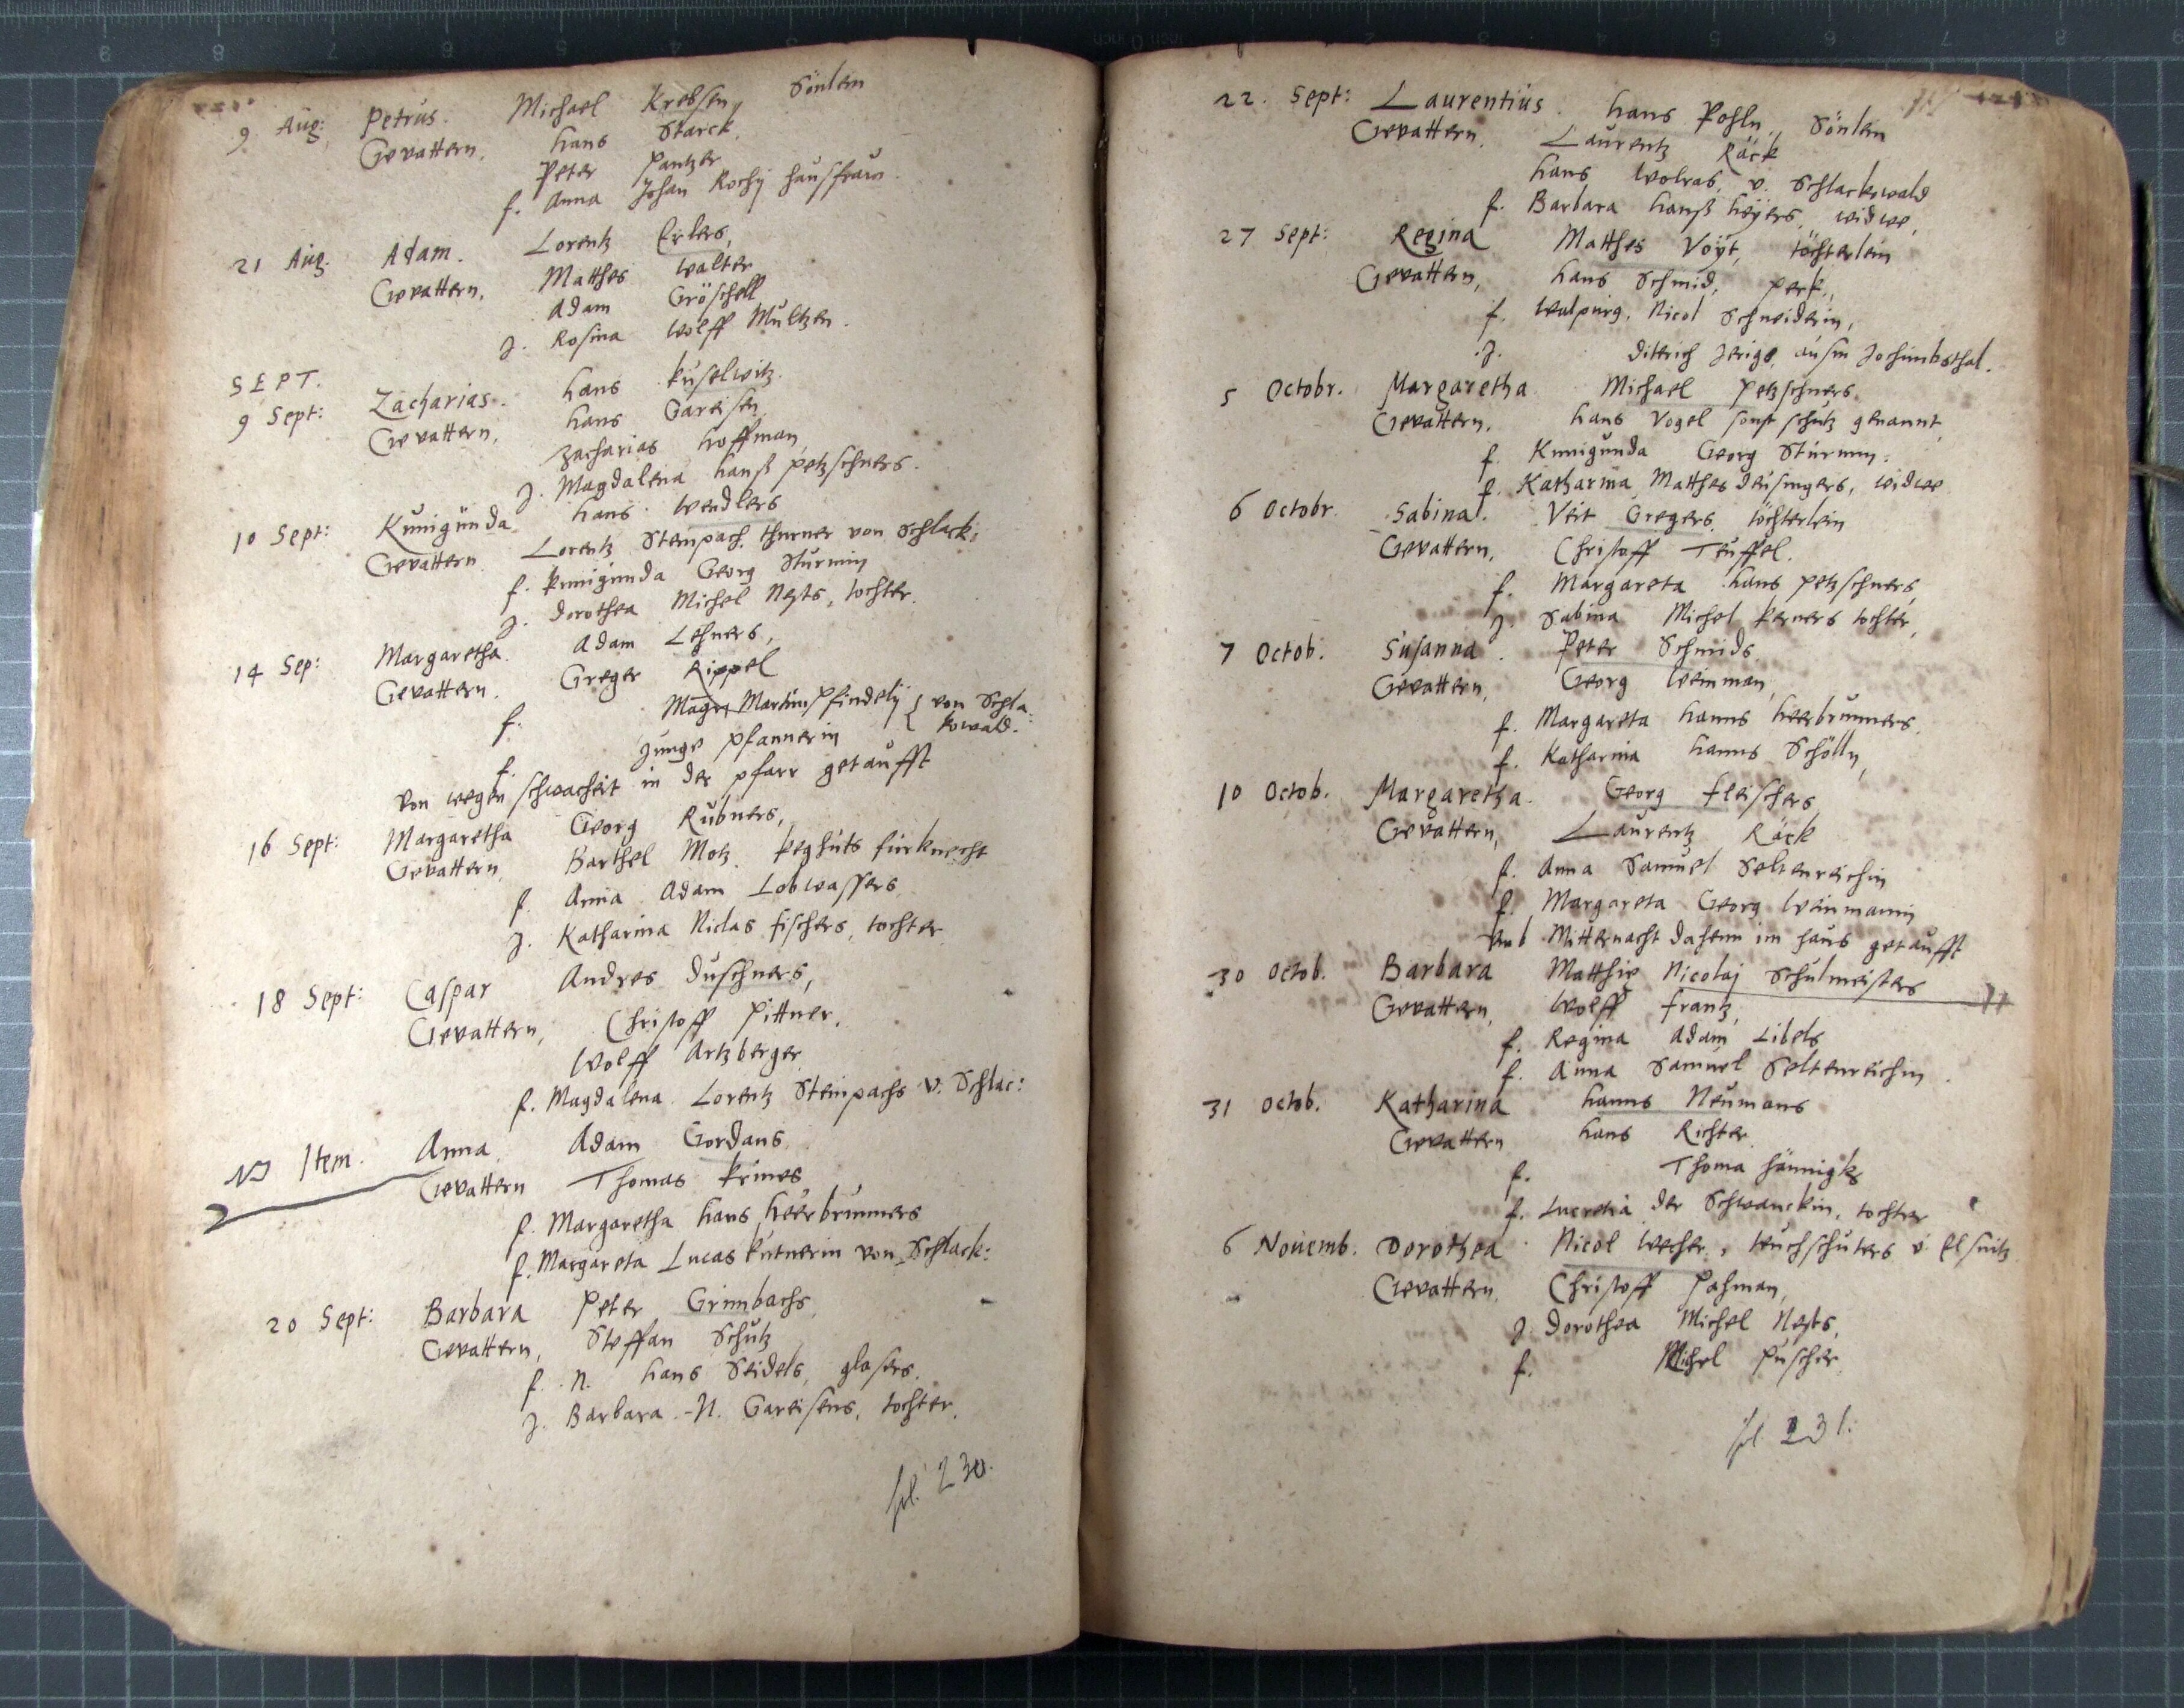 9 Aug: Petrus. Michael Krebsen Sönlein
Gevattern, hans Starck,
Peter Pantzer
f. Anna Johan Rochij hausfraw.
21 Aug. Adam. Lorentz Erlers,
Gevattern, Matthes Walter
Adam Gröschell
J. Rosina Wolff Multzen.
SEPT.
9 Sept: Zacharias. hans Kuselwitz.
Gevattern, hans Gareisen,
Zacharias hoffman,
J. Magdalena hanß petzschners.
10 Sept: Kunigunda hans Wendlers
Gevattern Lorentz Steinpach, thurner von Schlack:
f. Kunigunda Georg Sturmin
J. dorothea Michel Nests, tochter.
14 Sep: Margaretha. Adam Lehners,
Gevattern. Greger Rippel
f. Martin Pfindelij { von Schla:
f. Junge pfannerin { kowald.
Von wegen schwacheit in der pfarr getaufft
16 Sept: Margaretha Georg Rubners,
Gevattern, Barthel Motz. furknecht
f. Anna Adam Lobwassers
J. Katharina Niclas fischers, tochter
18 Sept: Caspar Andres Duschners,
Gevattern, Christoff Pittner,
Wolff Artzberger
f. Magdalena Lorentz Steinpachs v. Schlac:
Item. Anna Adam Gordans
Gevattern Thomas Krines
f. Margaretha hans heerbrunners
f. Margareta Lucas Kutnerin von Schlack:
20 Sept: Barbara Peter Grimbachs
Gevattern, Steffan Schutz
f. N. hans Seidels, glasers.
J. Barbara N. Gareisens, tochter.
fol. 230.
22. Sept: Laurentius. hans Pohln, Sönlein
Gevattern. Laurentz Räck
hans Wolrab, v. Schlackowald
f. Barbara hanß heyers, widwe,
27 Sept: Regina Matthes Voÿt, töchterlein
Gevattern, hans Schmid, perk,
f. Walpurg, Nicol Schneiderin,
J. diterich Jerigs, ausm Jochimbsthal.
5 Octobr. Margaretha Michael Petzschners
Gevattern. hans Vogel sonst schutz genannt,
f. Kunigunda Georg Sturmin.
f. Katharina Matthes Deusingers, widwe
6 Octobr. Sabina. Veit Gregers töchterlein
Gevattern, Christoff Teuffel.
f. Margareta hans petzschners,
J. Sabina Michel Kerners tochter,
7 Octob. Susanna. Peter Schmids
Gevattern, Georg Weinman,
f. Margareta hanns heerbrunners.
f. Katharina hanns Schölln,
10 Octob. Margaretha. Georg fleischers
Gevattern, Laurentz Räck
f. Anna Samuel Seltenreichin
f. Margareta Georg Weinmanin
Umb Mitternacht daheim im haus getaufft
30 Octob. Barbara Matthie Nicolaj Schulmeisters
Gevattern, Wolff frantz,
f. Regina Adam Libels
f. Anna Samuel Seltenreichin.
31 Octob. Katharina hanns Neumans
Gevattern hans Richter
f. Thoma
f. Lucretia der Schwanckin, tochter
6 Novemb. Dorothea. Nicol Wecher, tuchschuters v Elsnitz
Gevattern. Christoff Pahman,
J. Dorothea Michel Nests,
f. Michel Puscher
fol. 231.